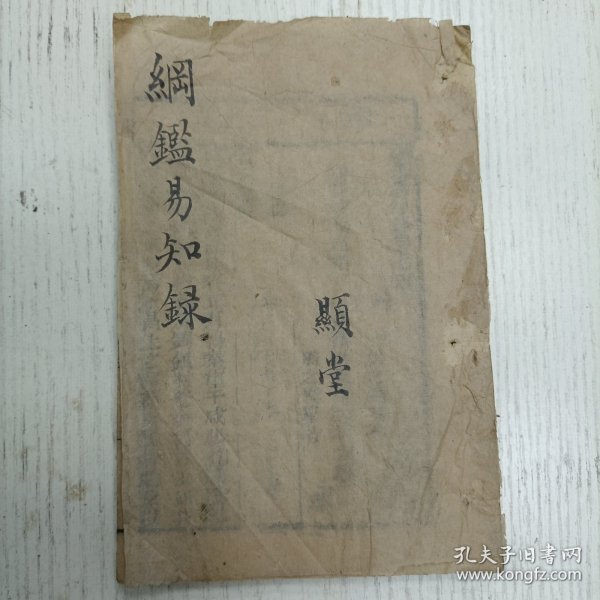 綱鑑易知録
顯堂
孔夫子旧书网
www.kongfz.com